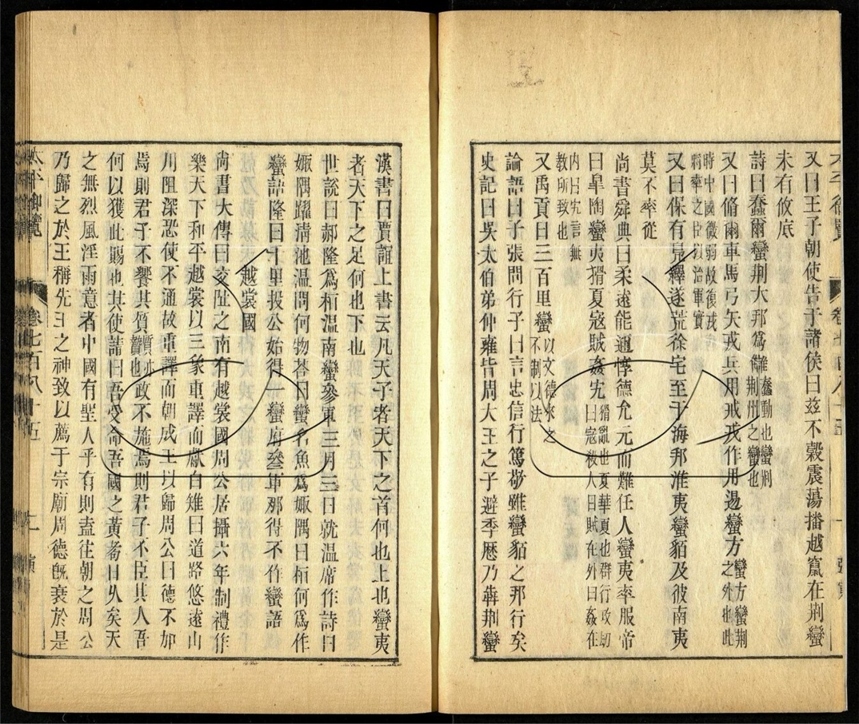 又曰王子朝使告于諸侯曰茲不穀震蕩播越竄在荆蠻
未有攸底
詩曰蠢爾蠻荆大邦爲讎蠢動也蠻荆荆州之蠻也
又曰脩爾車馬弓矢戎兵用戒戎作用逷蠻方蠻方蠻荆之外也此
時中國微弱故復戒將率之臣以治軍實
又曰保有鳧繹遂荒徐宅至于海邦淮夷蠻貊及彼南夷
莫不率從
尚書舜典曰柔遠能邇惇德允元而難任人蠻夷率服帝
曰臯陶蠻夷猾夏寇賊姦宄猾亂也夏華夏也群行攻劫曰寇殺人曰賊在外曰姦在
內曰宄言無教所致也
又禹貢曰三百里蠻以文德來之不制以法
論語曰子張問行子曰言忠信行篤敬雖蠻貊之邦行矣
史記曰吳太伯弟仲雍皆周大王之子避季歷乃犇荆蠻
漢書曰賈誼上書云凡天子者天下之首何也上也蠻夷
者天下之足何也下也
世說曰郝隆爲桓溫南蠻參軍三月三日就溫席作詩曰
娵隅躍淸池溫問何物答曰蠻名魚爲娵隅曰桓何爲作
蠻語隆曰千里投公始得一蠻府參軍那得不作蠻語
越裳國
尚書大傳曰交阯之南有越裳國周公居攝六年制禮作
樂天下和平越裳以三象重譯而獻白雉曰道路悠遠山
川阻深恐使不通故重譯而朝成王以歸周公曰德不加
焉則君子不饗其質質亦贄也政不施焉則君子不臣其人吾
何以獲此賜也其使請曰吾受命吾國之黃耇曰久矣天
之無烈風淫雨意者中國有聖人乎有則盍往朝之周公
乃歸之於王稱先王之神致以薦于宗廟周德旣衰於是
太平御覽
卷七百八十五